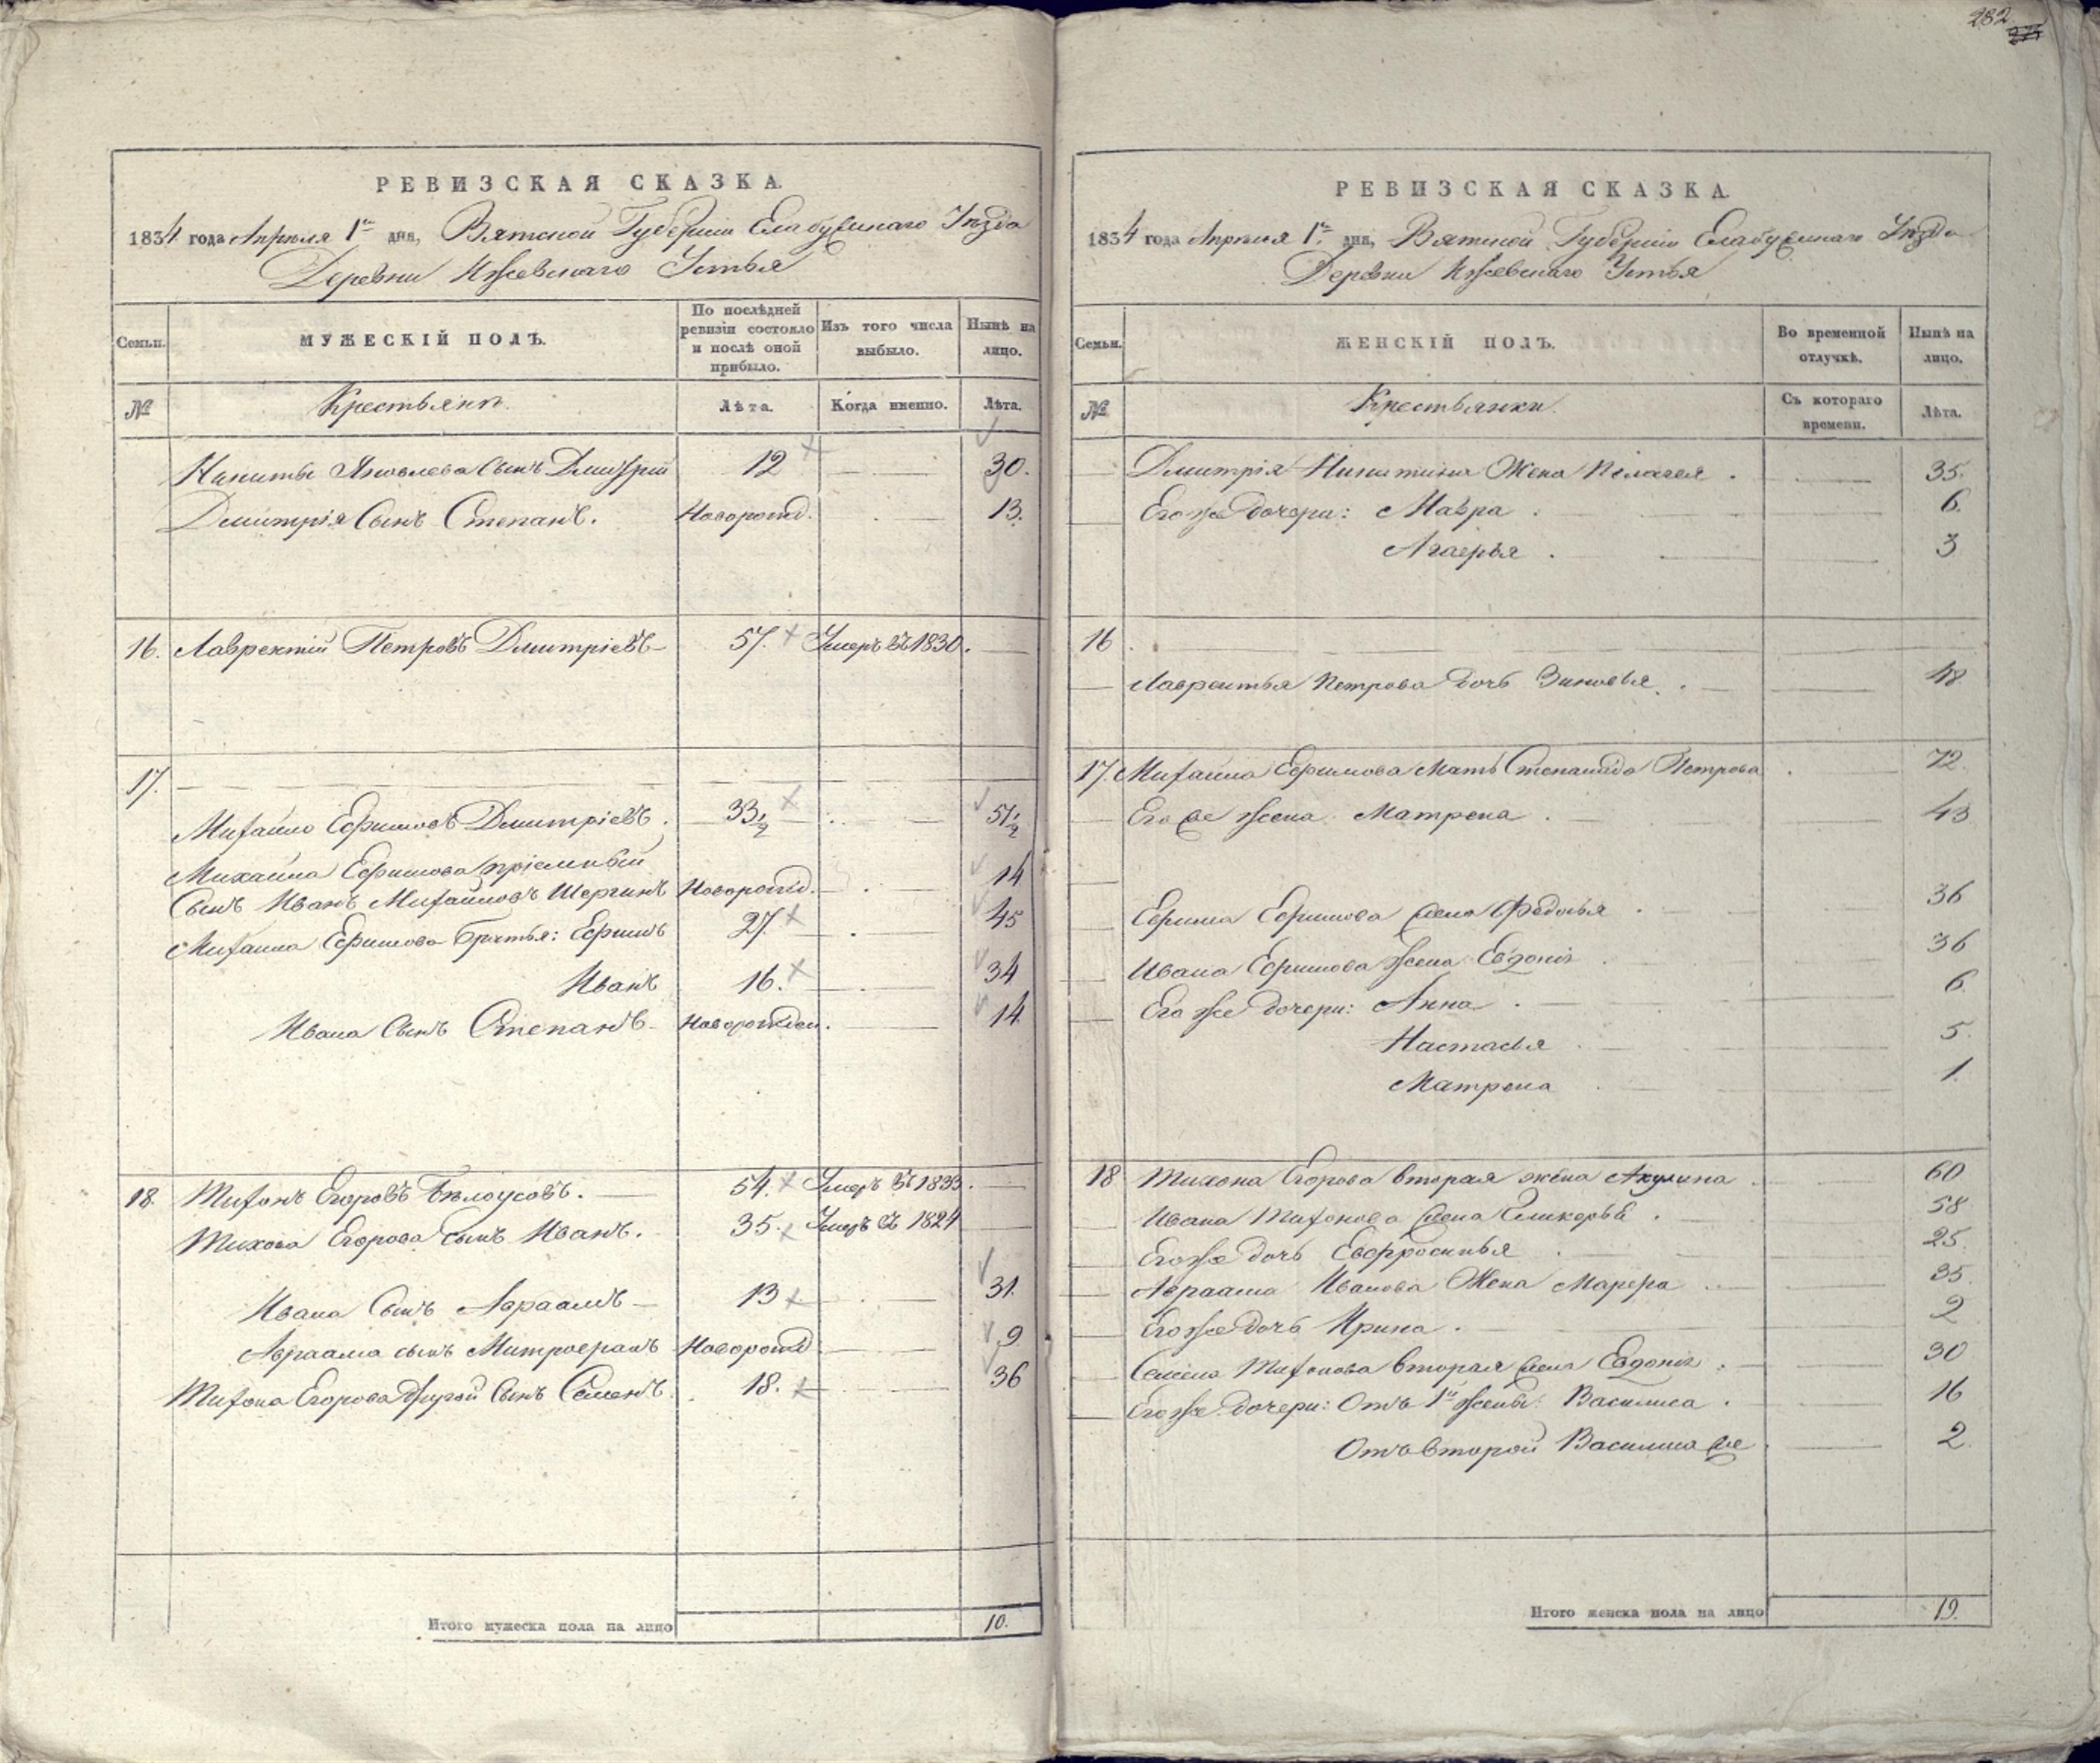 282
РЕВИЗСКАЯ СКАЗКА.
1834 года Апреля 1го дня, Вятской Губернии Елабужскаго Уезда
Деревни Ижевскаго Устья
Семьи.
МУЖЕСКІЙ ПОЛЪ.
По послѣдней ревизіи состояло и послѣ оной прибыло.
Изъ того числа выбыло.
Нынѣ на лицо.
№
Крестьянъ.
Лѣта.
Когда именно.
Лѣта.
Никиты Яковлева Сынъ Дмитрій 12 30.
Дмитрія Сынъ Степанъ. Новорожд. 13.
16. Лаврентій Петровъ Дмитріевъ 57. Умеръ въ 1830.
17.
Михайло Ефимовъ Дмитріевъ. 33½ 51½
Михайла Ефимова пріемный
Сынъ Иванъ Михайловъ Шергинъ Новорожд. 14
Михайла Ефимова братья: Ефимъ 27 45
Иванъ 16. 34
Ивана Сынъ Степанъ Новорожден. 14
18. Тихонъ Егоровъ Бѣлоусовъ. 54. Умеръ въ 1833.
Тихона Егорова сынъ Иванъ. 35. Умеръ въ 1824
Ивана Сынъ Авраамъ 13 31.
Авраама сынъ Митрофанъ Новорожд 9
Тихона Егорова другой Сынъ Семенъ. 18. 36
Итого мужеска пола на лицо 10.
РЕВИЗСКАЯ СКАЗКА.
1834 года Апреля 1го дня, Вятской Губерніи Елабужскаго Уезда
Деревни Ижевскаго Устья
Семьи.
ЖЕНСКІЙ ПОЛЪ.
Во временной отлучкѣ.
Нынѣ на лицо.
№
Крестьянки.
Съ котораго времени.
Лѣта.
Дмитрія Никитина Жена Пелагея. 35.
Его же дочери: Мавра. 6.
Агафья. 3
16
Лаврентья Петрова дочь Зиновья. 48
17. Михайла Ефимова Мать Степанида Петрова 72.
Его же жена Матрена. 43
Ефима Ефимова жена Федосья. 36
Ивана Ефимова жена Евдокія 36
Его же дочери: Анна. 6
Настасья 5.
Матрена 1.
18 Тихона Егорова вторая жена Акулина 60
Ивана Тихонова жена 58
Его же дочь Евфросинья 25.
Авраама Иванова Жена Марфа 35.
Его же дочь Ирина. 2
Семена Тихонова вторая жена Евдокія. 30
Его же дочери: Отъ 1й жены: Василиса. 16
Отъ второй Василиса же 2.
Итого женска пола на лицо 19.